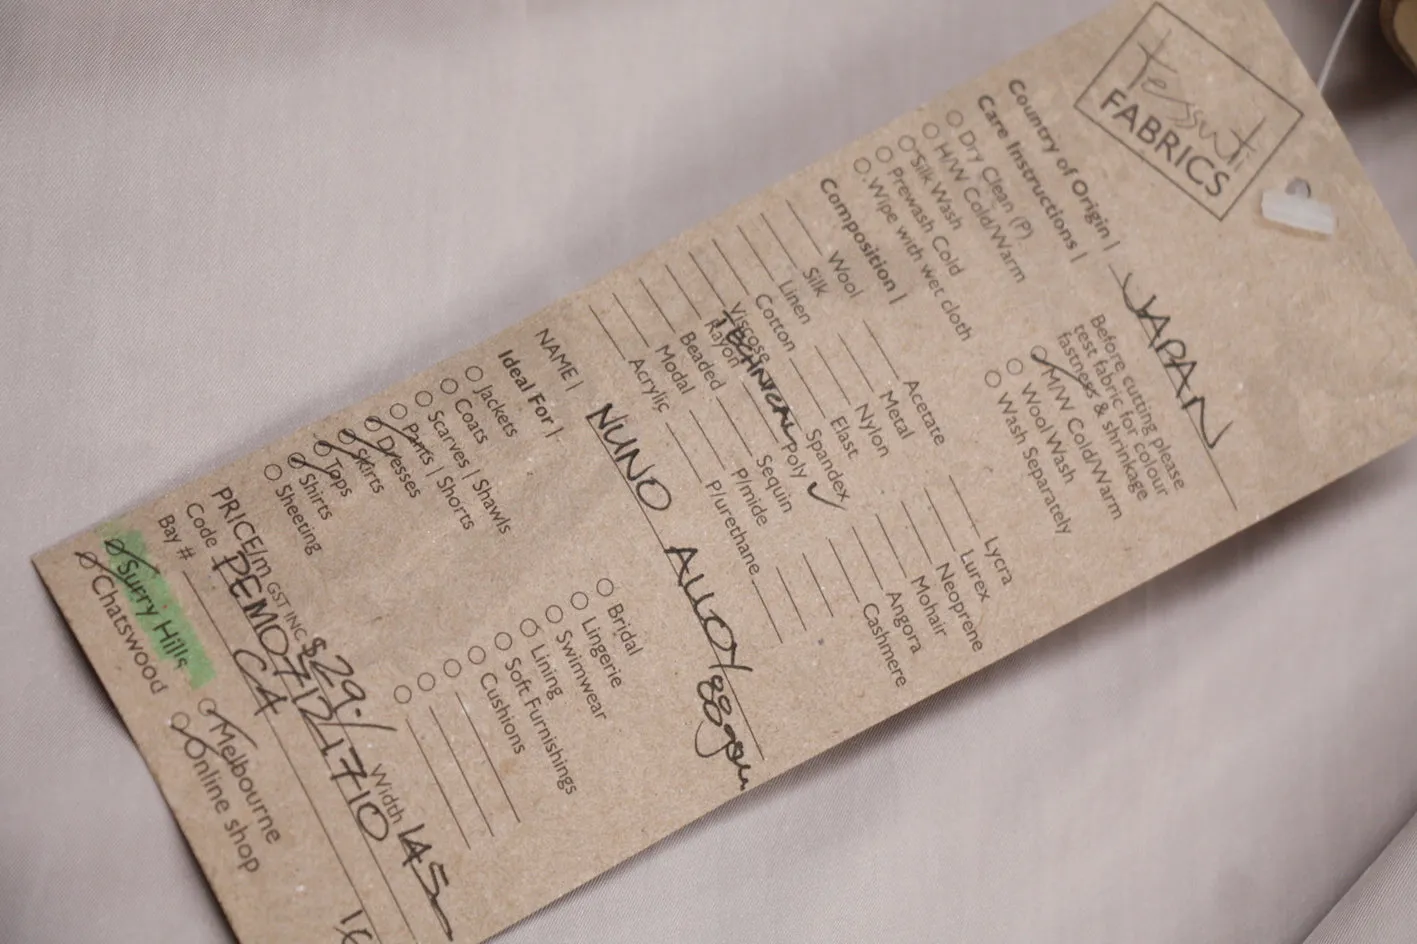 tessuti
FABRICS
Country of Origin | JAPAN
Care Instructions |
Dry Clean (P)
H/W Cold/Warm
Silk Wash
Prewash Cold
Wipe with wet cloth
Before cutting please
test fabric for colour
fastness & shrinkage
M/W Cold/Warm
Wool Wash
Wash Separately
Composition |
Wool
Silk
Linen
Cotton
Viscose
Rayon
Beaded
Modal
Acrylic
Acetate
Metal
Nylon
Elast
Spandex
TECHNICAL Poly ✓
Sequin
P/mide
P/urethane
Lycra
Lurex
Neoprene
Mohair
Angora
Cashmere
NAME | NUNO ALLOY/88gsm
Ideal For |
Jackets
Coats
Scarves | Shawls
Pants | Shorts
Dresses
Skirts
Tops
Shirts
Sheeting
Bridal
Lingerie
Swimwear
Lining
Soft Furnishings
Cushions
PRICE/m GST INC $29./ Width 145
Code PEMO712/1710
Bay # CA
Surry Hills
Chatswood
Melbourne
Online shop